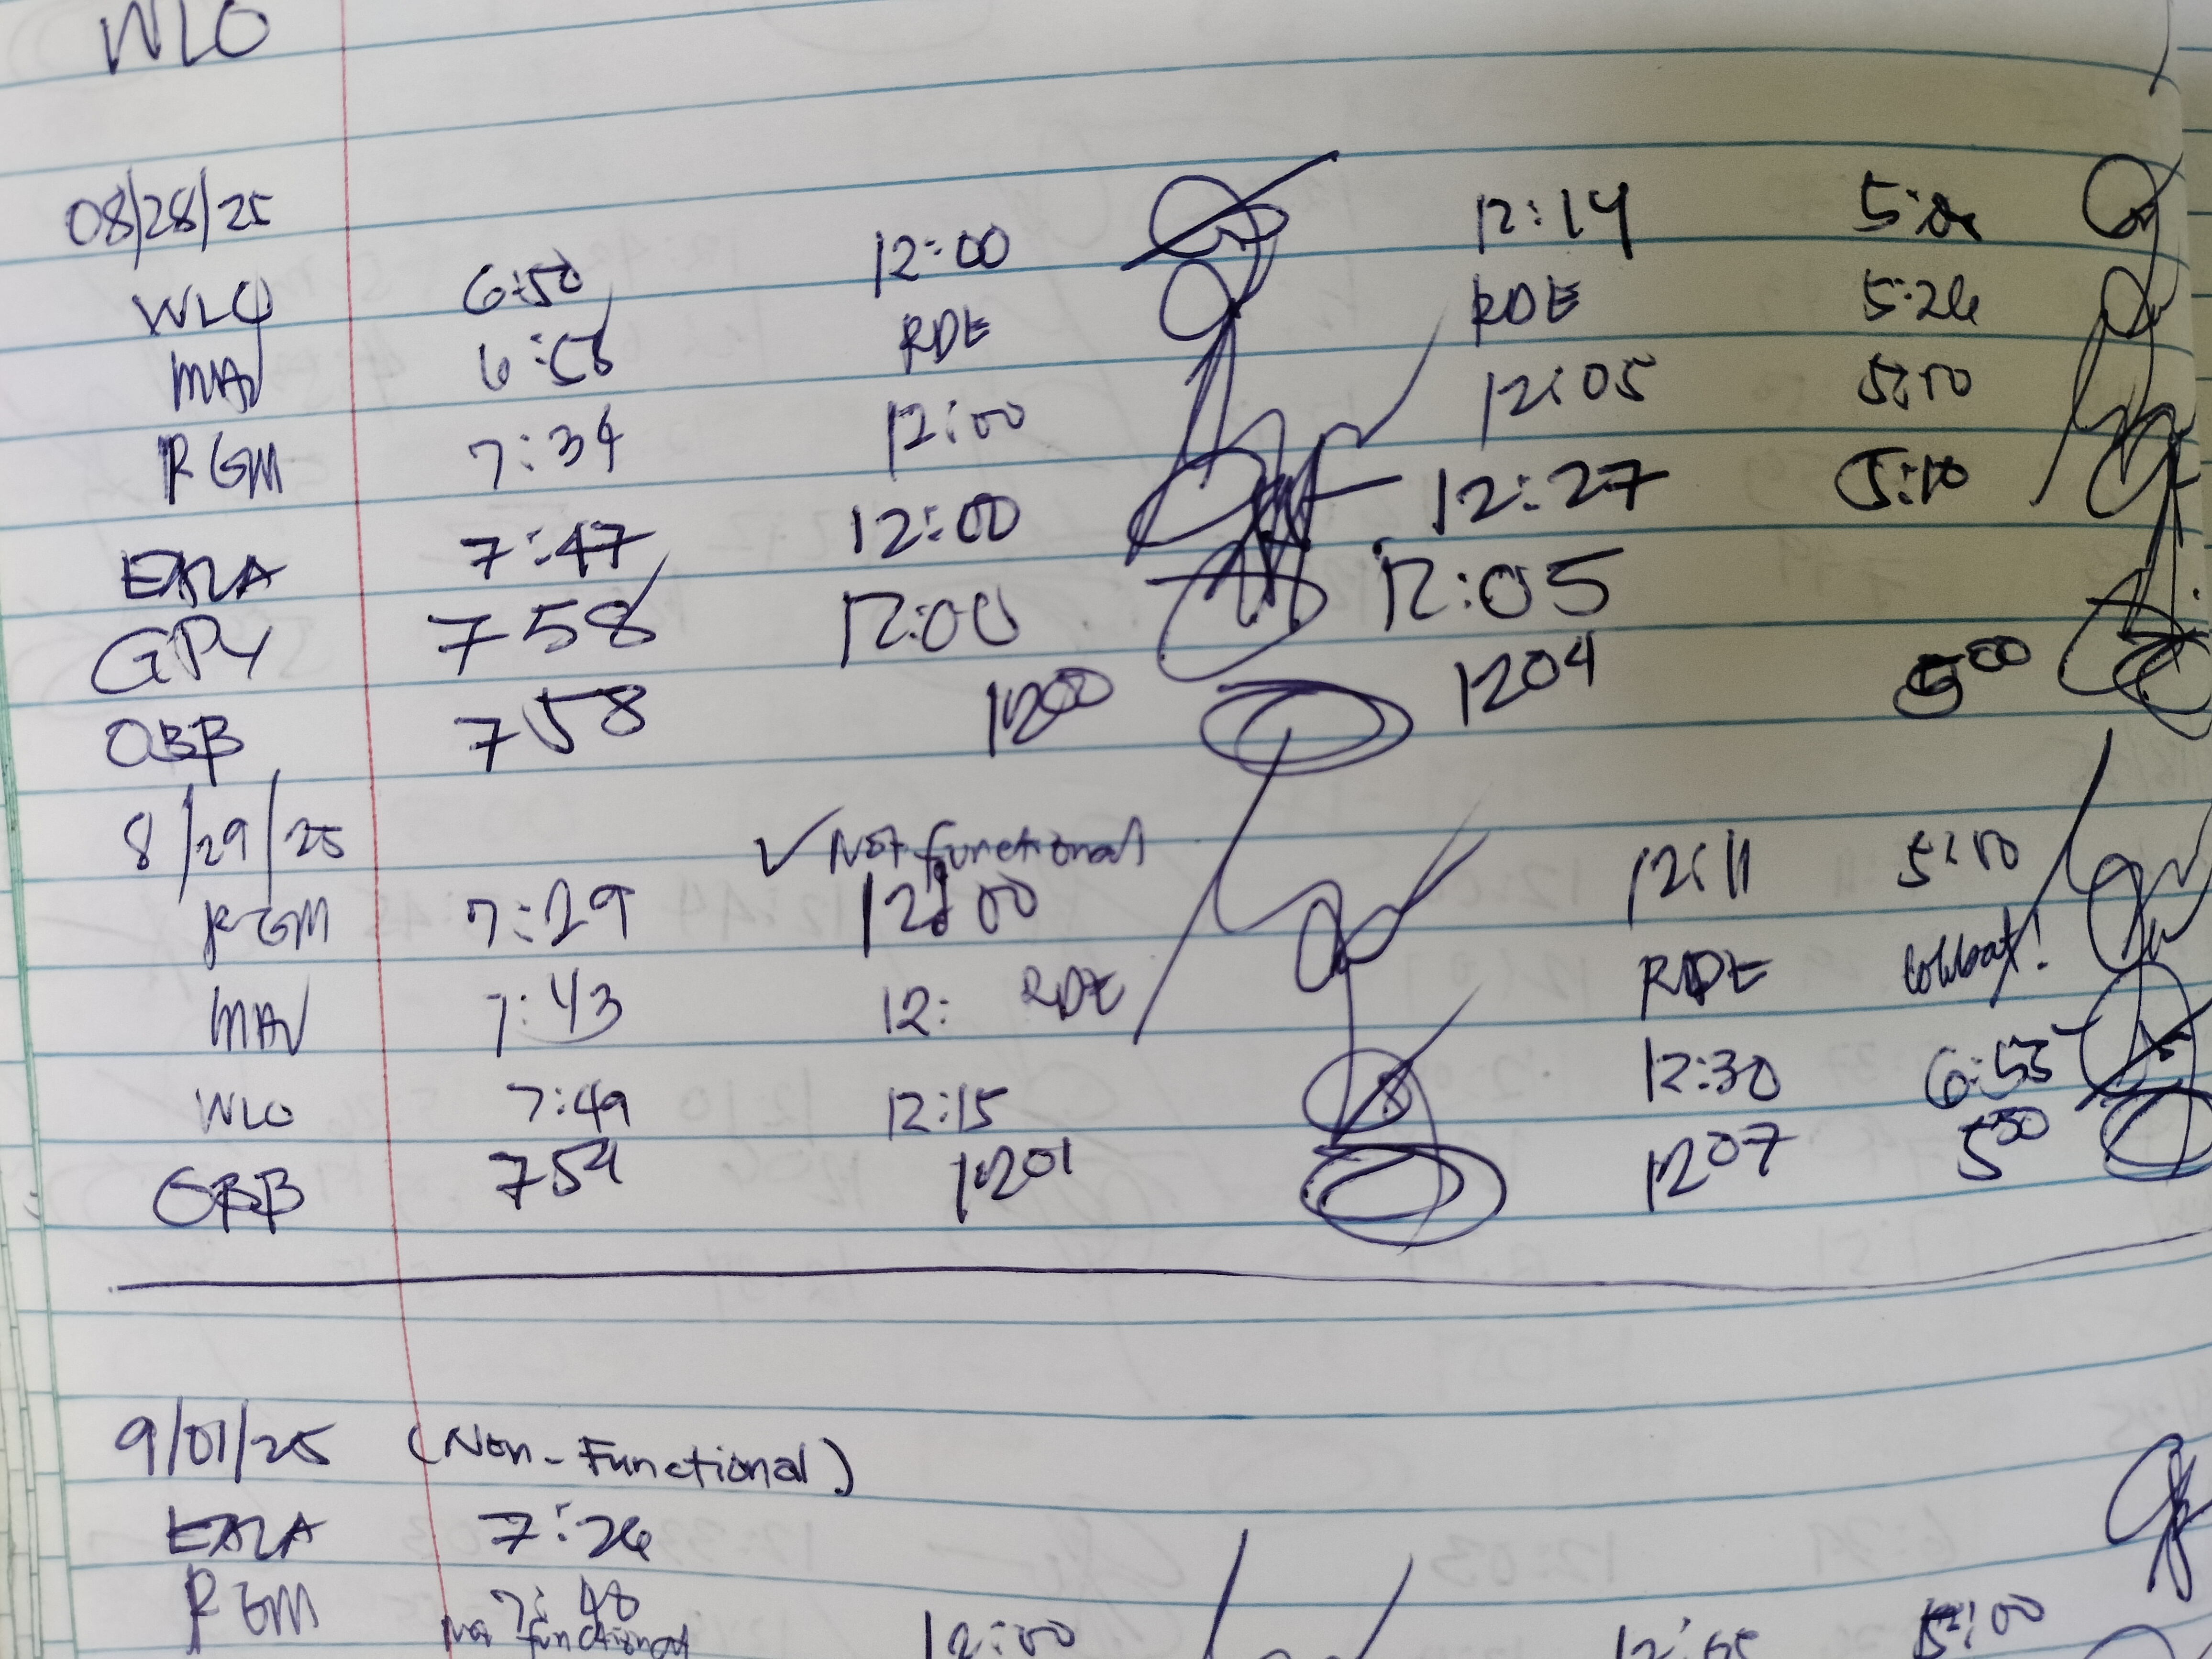 WLO
08/28/25
WLO 6:50 12:00 12:14
MAV 6:58 RDE RDE 5:26
RGM 7:34 12:00 12:05 5:10
EALA 7:47 12:00 12:27 5:10
GPY 758 12:00 12:05
OBB 758 1200 1204 500
8/29/25 ✓ Not functional
RGM 7:29 12:00 12:11 5:10
MAV 7:43 12: RDE RDE
WLO 7:49 12:15 12:30 6:55
OBB 754 1201 1207 500
9/01/25 (Non-Functional)
EALA 7:26
RGM 7:48 12:00 5:00
Not functional